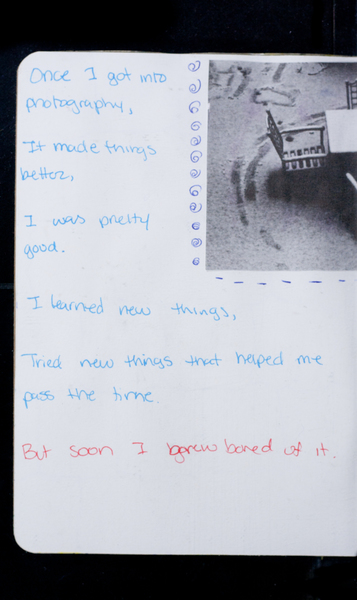 Once I got into
photography,
It made things
better,
I was pretty
good.
I learned new things,
Tried new things that helped me
pass the time.
But soon I bgrew bored of it.